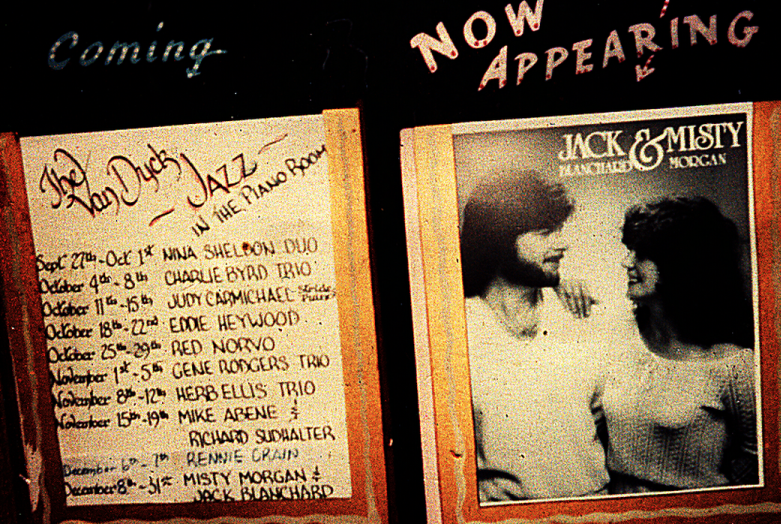 Coming
The Van Dyck
JAZZ
IN THE PIANO ROOM
Sept 27th - Oct 1st NINA SHELDON DUO
October 4th - 8th CHARLIE BYRD TRIO
October 11th - 15th JUDY CARMICHAEL Stride Piano
October 18th - 22nd EDDIE HEYWOOD
October 25th - 29th RED NORVO
November 1st - 5th GENE RODGERS TRIO
November 8th - 12th HERB ELLIS TRIO
November 15th - 19th MIKE ABENE &
RICHARD SUDHALTER
December 6th - 7th RENNIE CRAIN
December 8th - 31st MISTY MORGAN &
JACK BLANCHARD
NOW
APPEARING
JACK & MISTY
BLANCHARD MORGAN